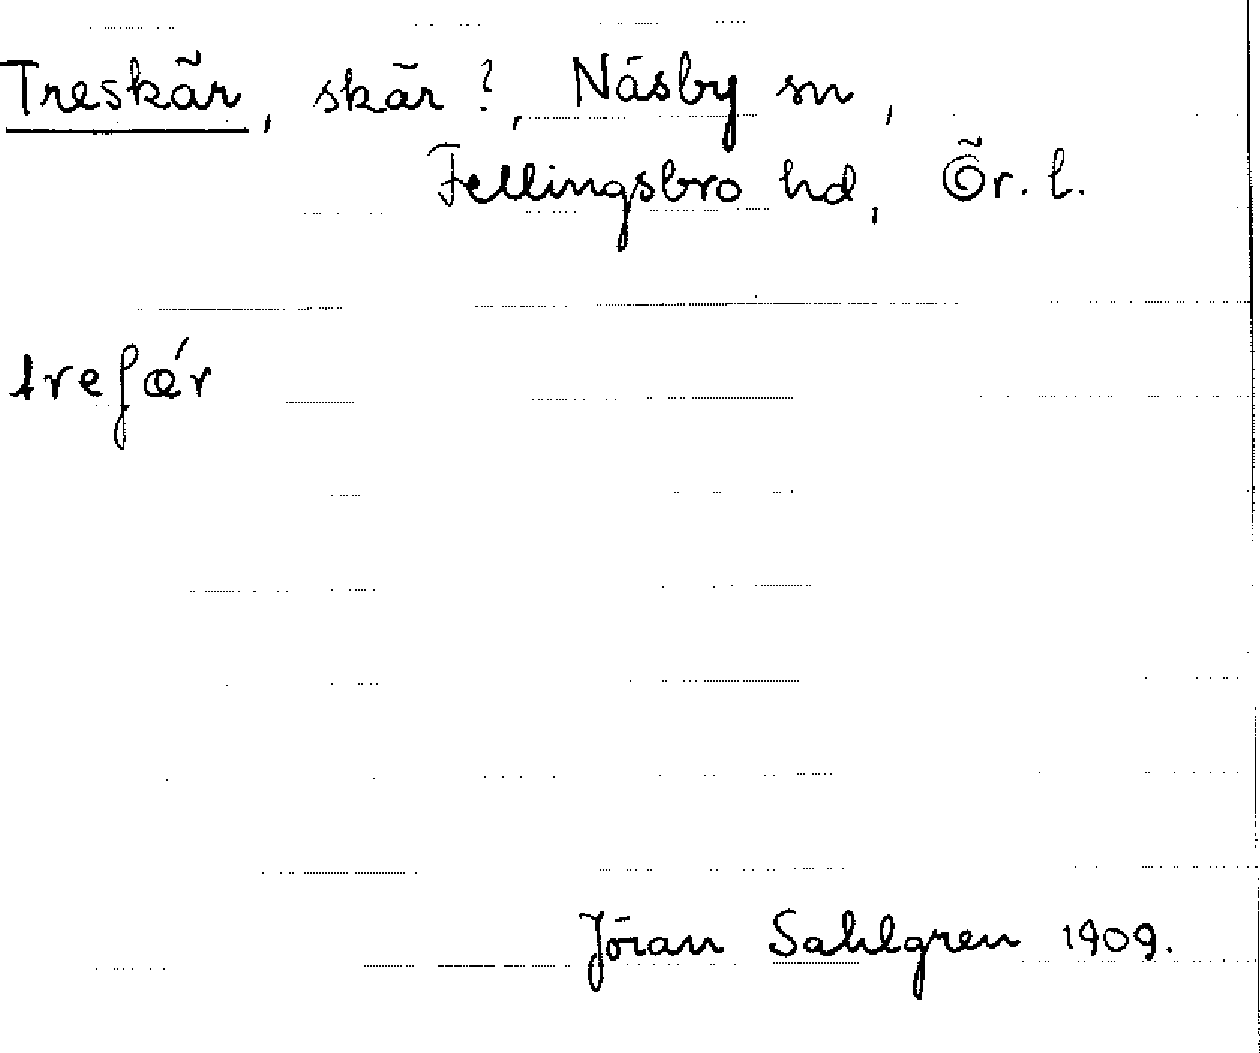 Treskär, skär?, Näsby sn,
Fellingsbro hd, Ör. l.
treʃǽr
Jöran Sahlgren 1909.